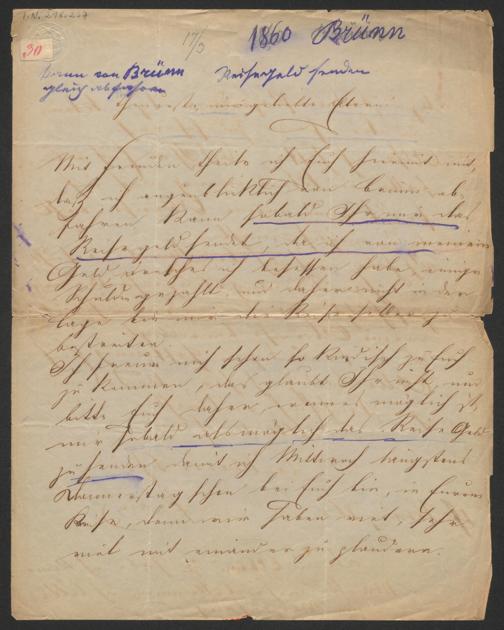 I.N. 216.257
30
17/3 1860 Brünn
kann von Brünn Reisegeld senden
gleich abfahren
Theuerste, innigstgeliebte Eltern!
Mit Freuden theile ich Euch hiermit mit,
daß ich augenblicklich von Brünn ab-
fahren kann sobald Ihr mir das
Reisegeld sendet, da ich von meinem
Geld welches ich besessen habe, einige
Schulden gezahlt, und daher nicht in der
Lage bin mir die Reise selber zu
bestreiten.
Ich freue mich schon so kindisch zu Euch
zu kommen, das glaubt Ihr nicht, und
bitte Euch daher wenn es möglich ist,
mir sobald als möglich das Reise Geld
zu senden, damit ich Mittwoch längstens
Donnerstag schon bei Euch bin, in Eurem
Kreise, denn wir haben viel, sehr
viel mit einander zu plaudern.